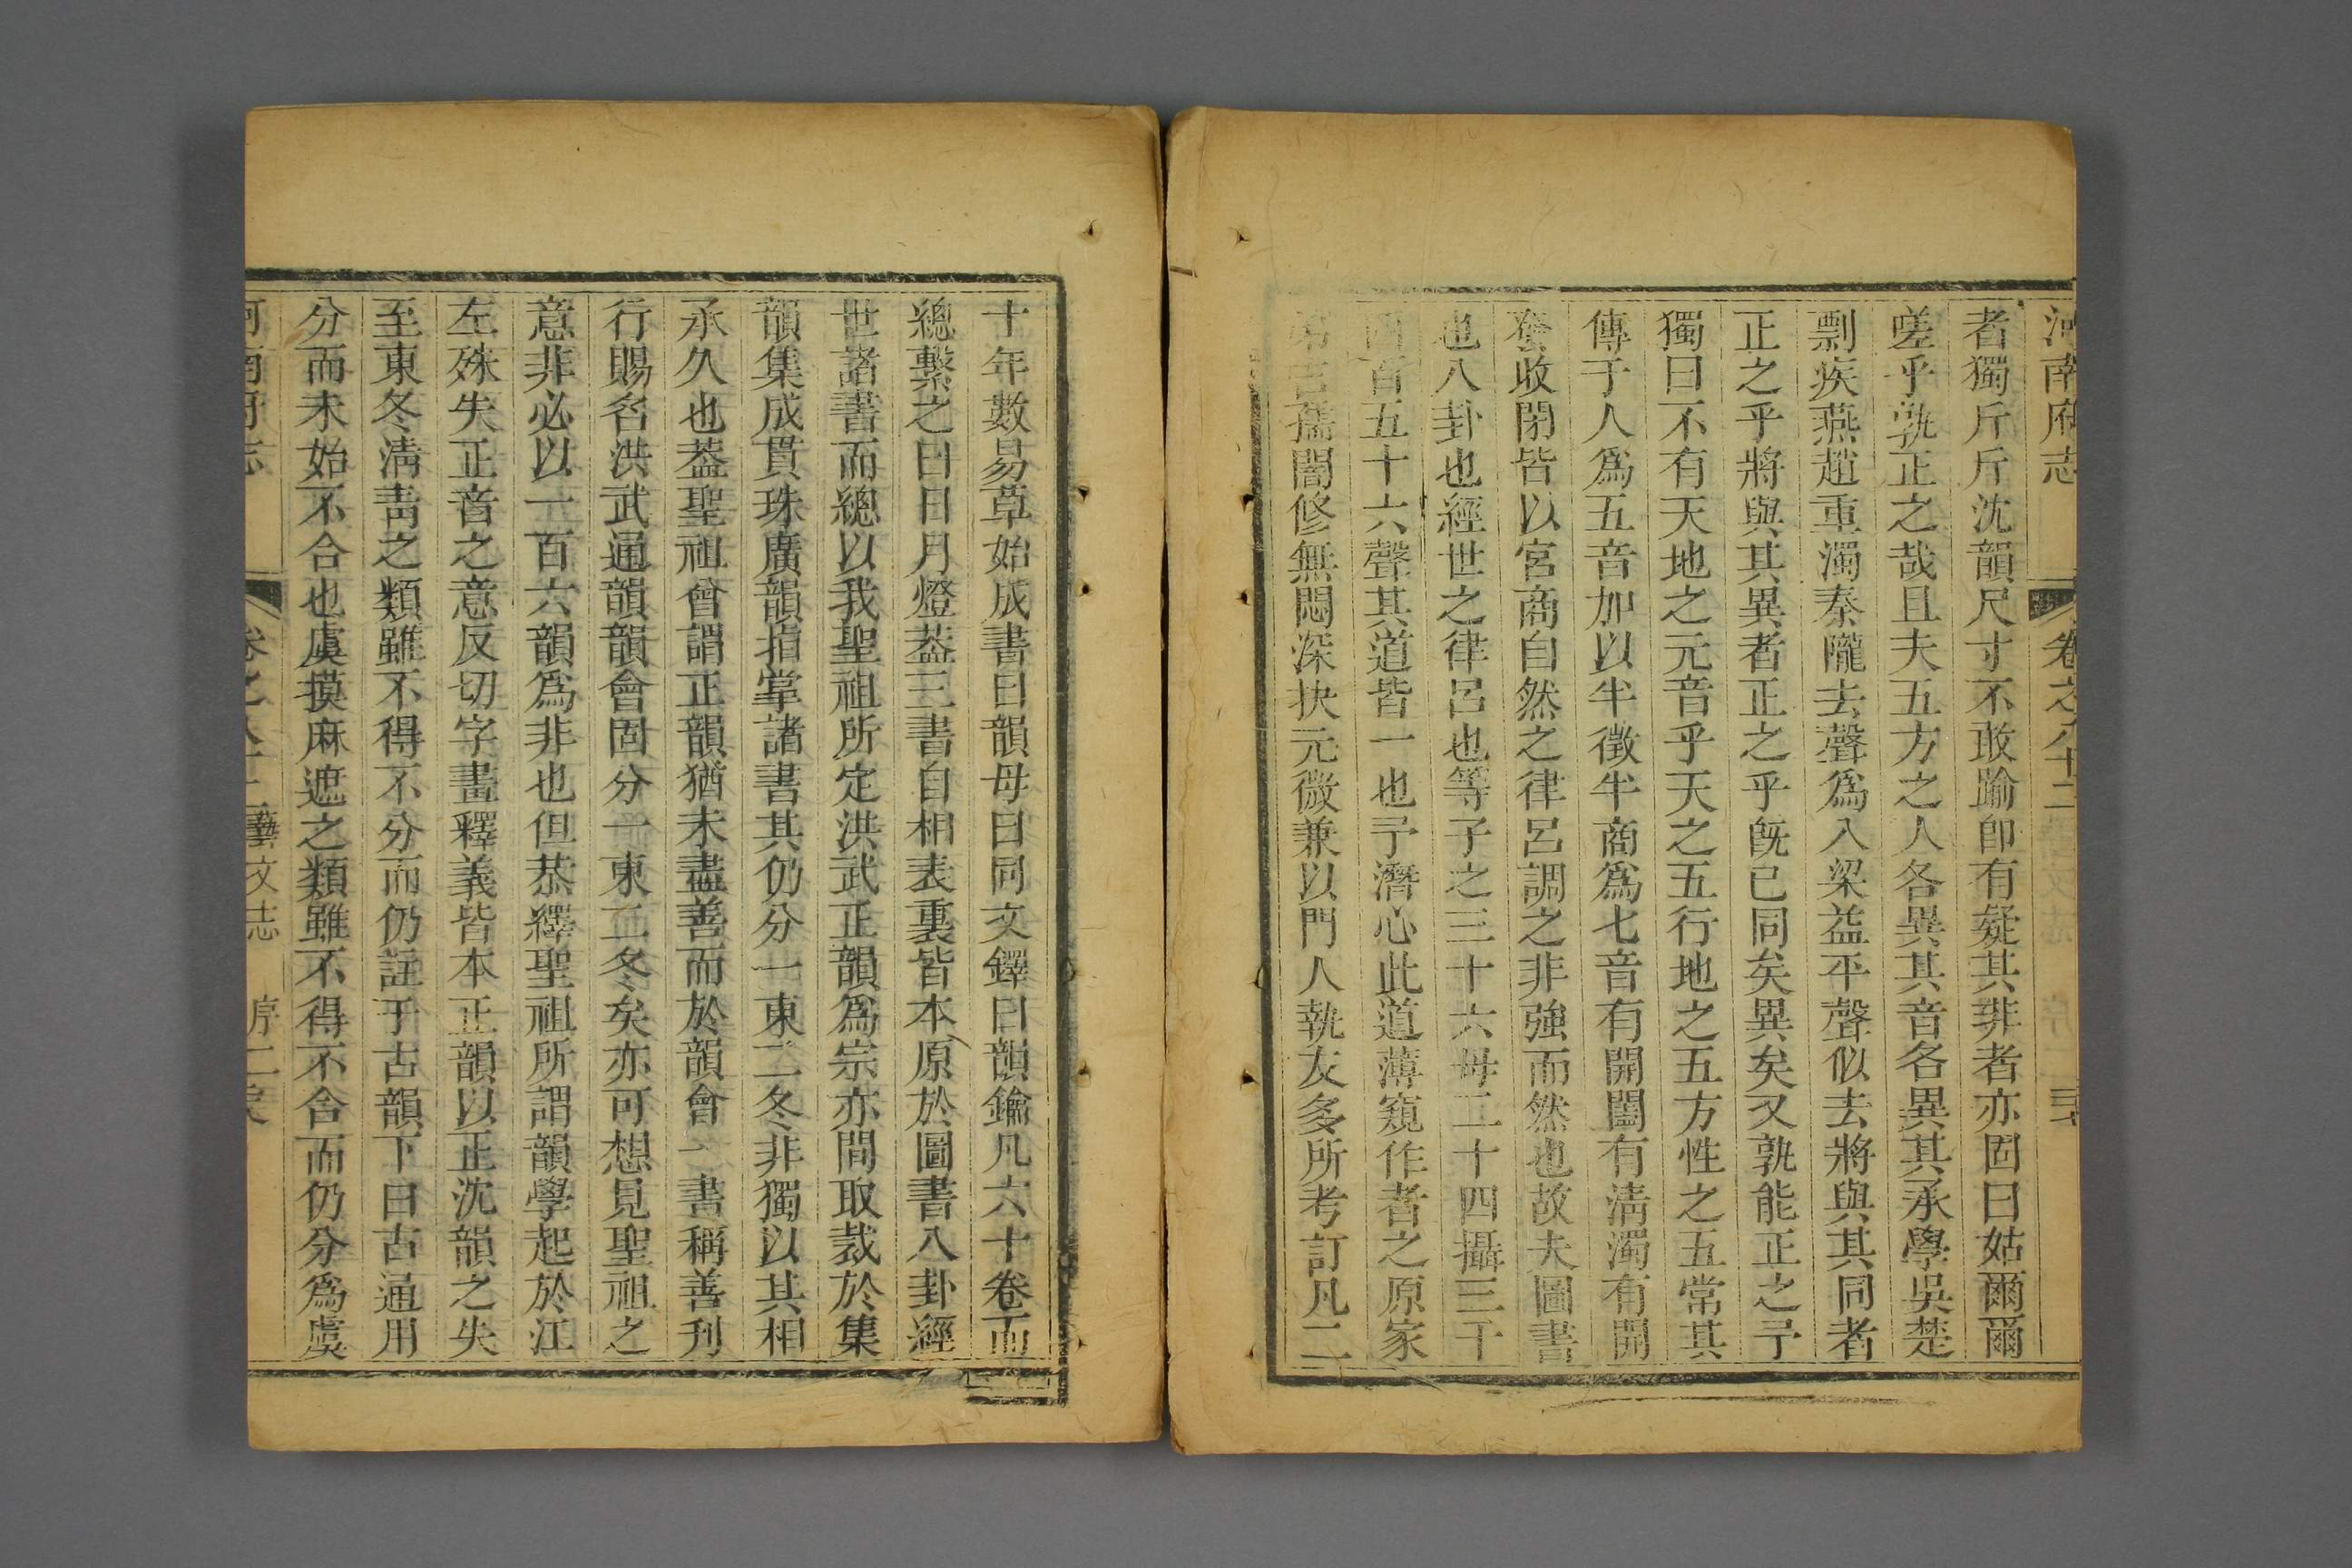 河南府志 卷之八十二
者獨斤斤沈韻尺寸不敢踰卽有疑其非者亦固曰姑爾爾
嗟乎孰正之哉且夫五方之人各異其音各異其承學吳楚
剽疾燕趙重濁秦隴去聲爲入梁益平聲似去將與其同者
正之乎將與其異者正之乎旣已同矣異矣又孰能正之予
獨曰不有天地之元音乎天之五行地之五方性之五常其
傳于人爲五音加以半徵半商爲七音有開闔有淸濁有開
發收閉皆以宮商自然之律呂調之非強而然也故夫圖書
也八卦也經世之律呂也等子之三十六母二十四攝三千
百五十六聲其道皆一也予潛心此道薄窺作者之原家
孺闇修無悶深抉元微兼以門人執友多所考訂凡二
十年數易草始成書曰韻母曰同文鐸曰韻鑰凡六十卷而
總繫之曰日月燈葢三書自相表裏皆本原於圖書八卦經
世諸書而總以我聖祖所定洪武正韻爲宗亦間取裁於集
韻集成貫珠廣韻指掌諸書其仍分一東二冬非獨以其相
承久也葢聖祖會謂正韻猶未盡善而於韻會一書稱善刊
行賜名洪武通韻韻會固分一東二冬矣亦可想見聖祖之
意非必以一百六韻爲非也但恭繹聖祖所謂韻學起於江
左殊失正音之意反切字畫釋義皆本正韻以正沈韻之失
至東冬淸靑之類雖不得不分而仍註于古韻下曰古通用
分而未始不合也虞摸麻遮之類雖不得不合而仍分爲虞
河南府志 卷之八十二 藝文志 序二